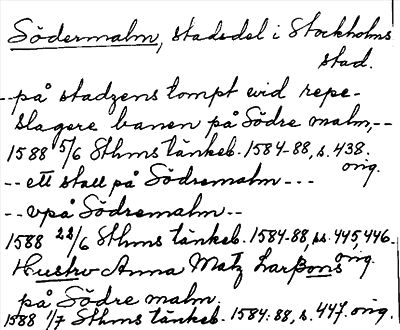 Södermalm, stadsdel i Stockholms
stad.
--på stadzens tompt vid repe-
slagere banen på Södre malm,--
1588 5/6 Sthms tänkeb. 1584-88, s. 438.
orig.
--ett stall på Södremalm---
--vpå Södremalm--
1588 22/6 Sthms tänkeb. 1584-88, ss. 445, 446.
orig.
Hustrv Anna Matz Larßons
på Södre malm.
1588 1/7 Sthms tänkeb. 1584-88, s. 447. orig.